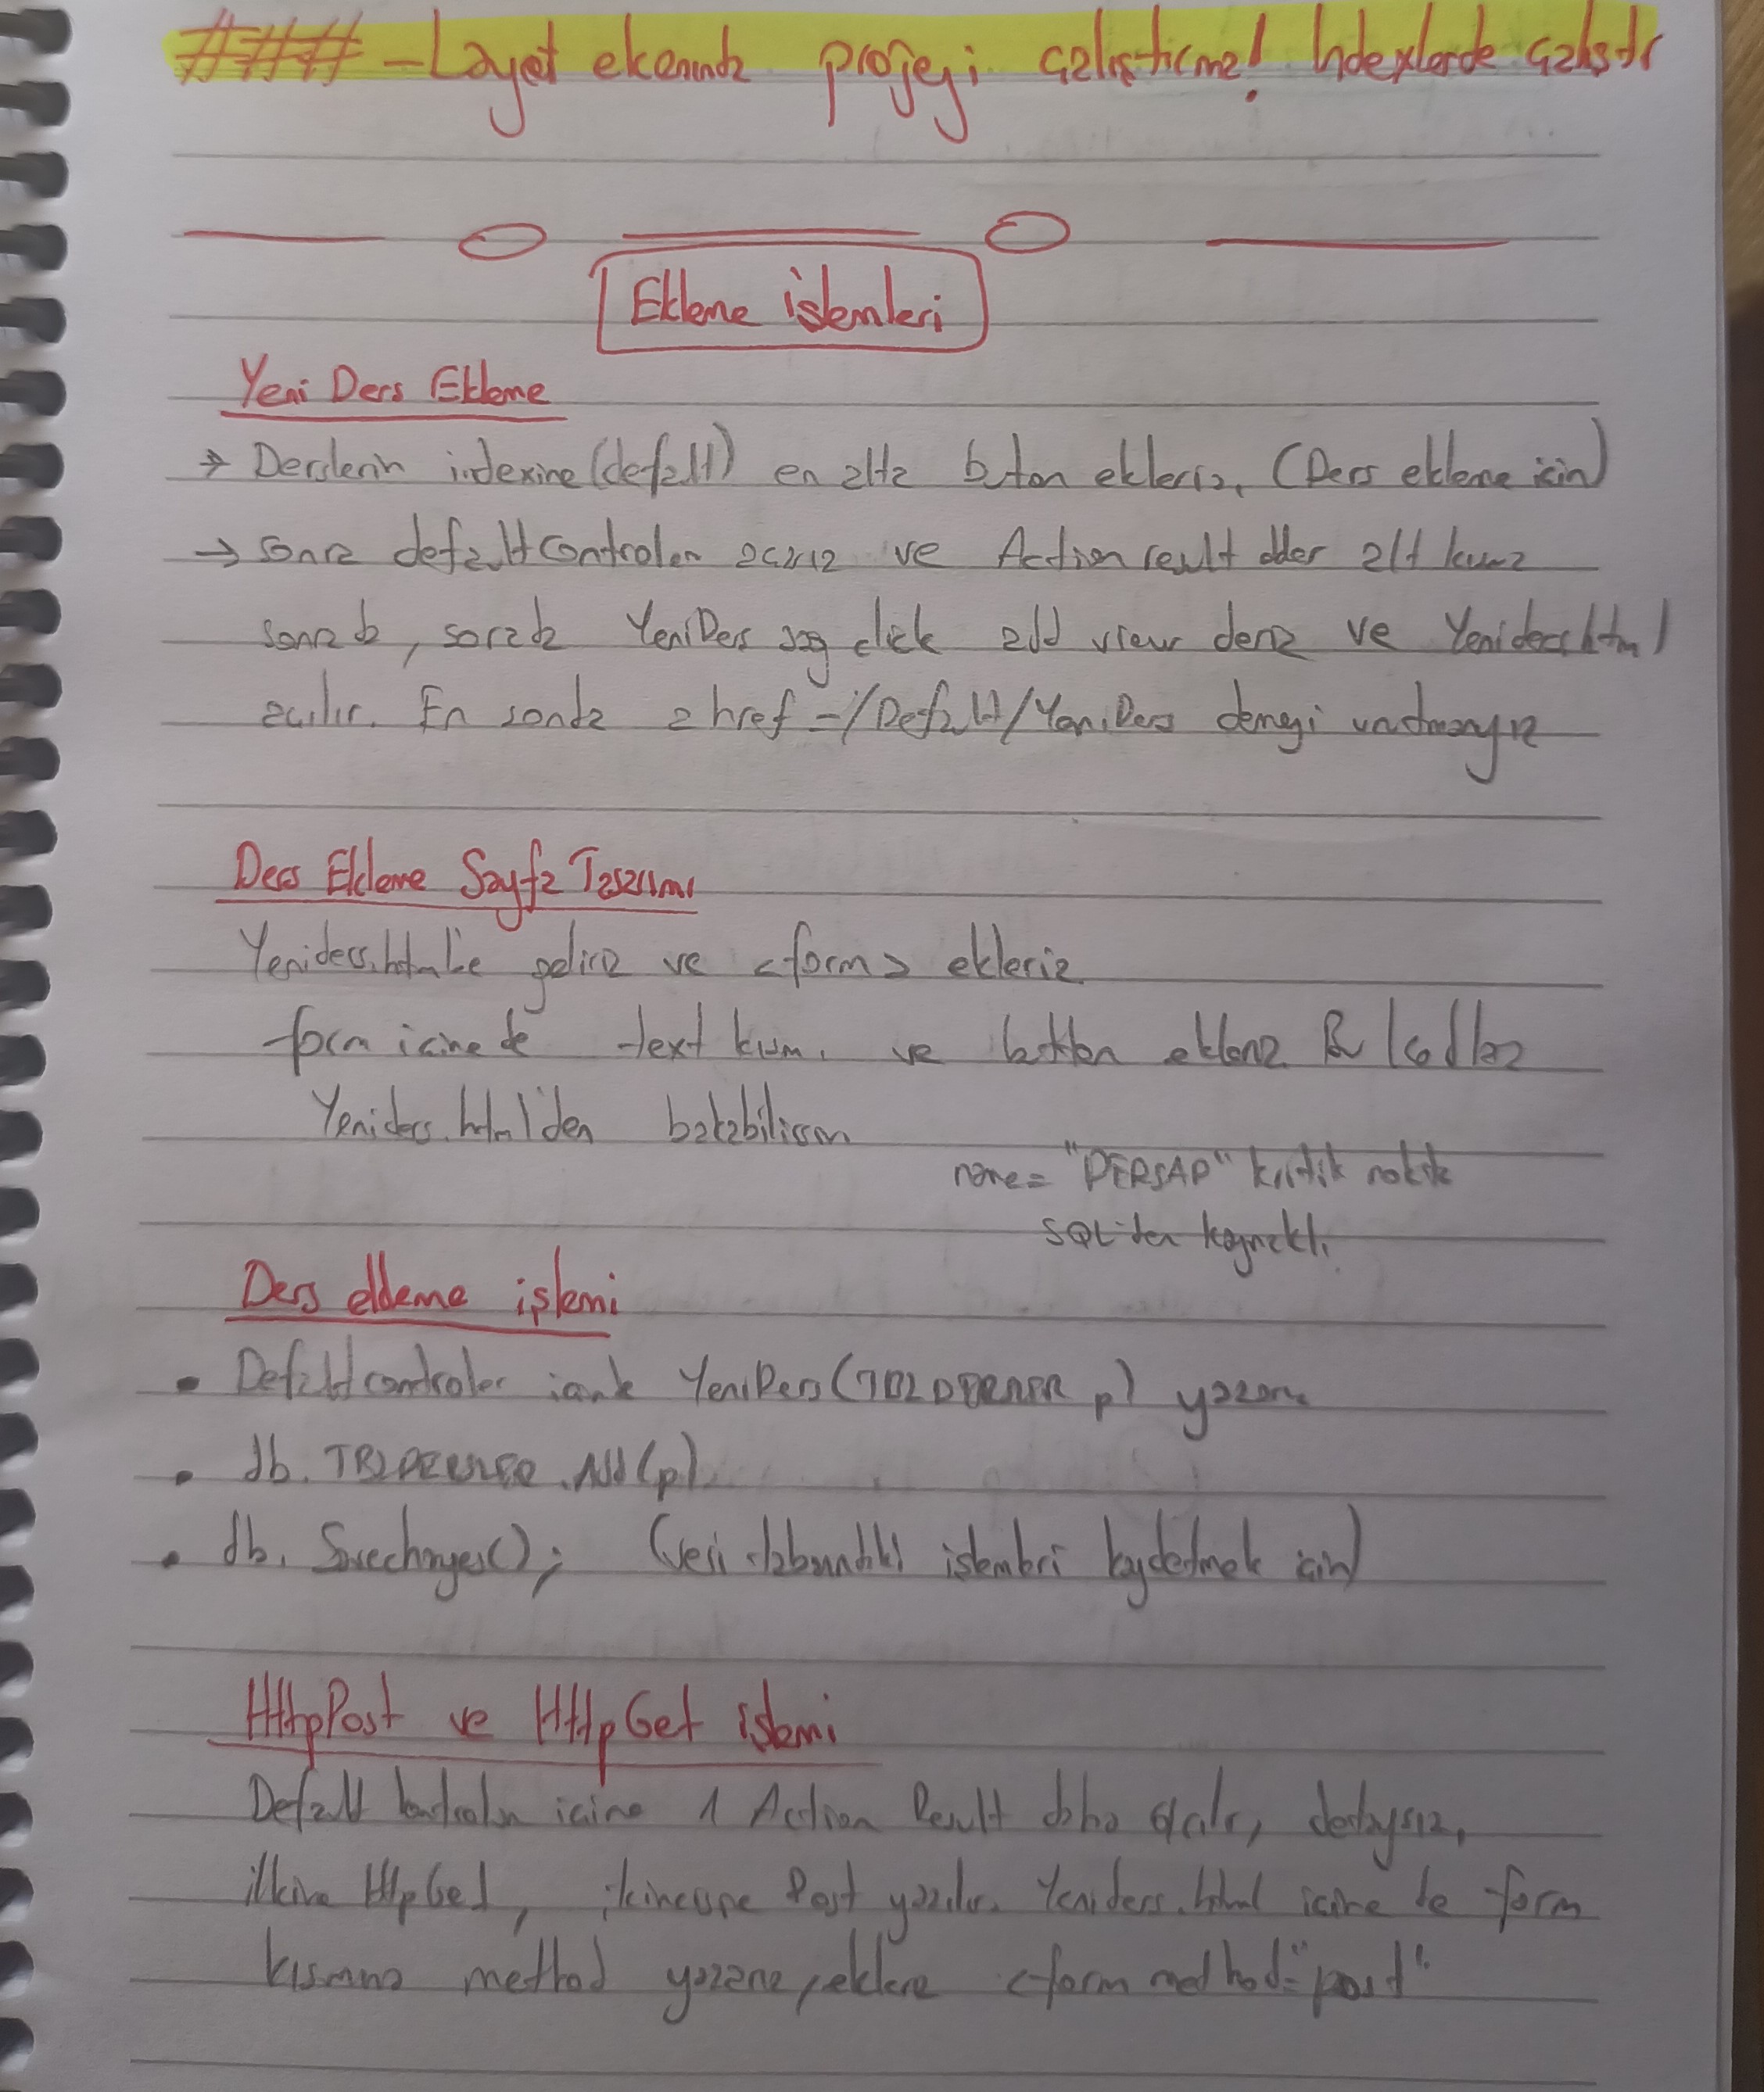 ### -Layot ekranında projeyi çalıştırma! Indexlerde çalıştır
Ekleme işlemleri
Yeni Ders Ekleme
→ Derslerin indexine(defalt) en alta buton ekleriz. (Ders ekleme için)
→ sonra defaltcontroler açarız ve Action result alt kısma
sonra da, sorada YeniDers sağ click add view deriz ve Yeniders.html
açılır. En sonda a href =/Defalt/YeniDers demeyi unutmayız
Ders Ekleme Sayfa Tasarımı
Yeniders.html'e geliriz ve <form> ekleriz
form icine de text kısmı ve button ekleniz Bu kodlara
Yeniders.html'den bakabilirsin
name= "DERSAD" kritik nokta
SQL'den kaynaklı.
Ders ekleme işlemi
• Defaltcontroler içinde YeniDers( p) yazarız
• db. .Add(p).
• db. Savechanges(); (veri tabanındaki işlemleri kaydetmek için)
HttpPost ve HttpGet işlemi
Defalt kontroler icine 1 Action Result daha
ilkine HttpGet, ikincisine Post yazılır. Yeniders.html icine de form
kısmına method yazarız, ekleriz <form method="post".